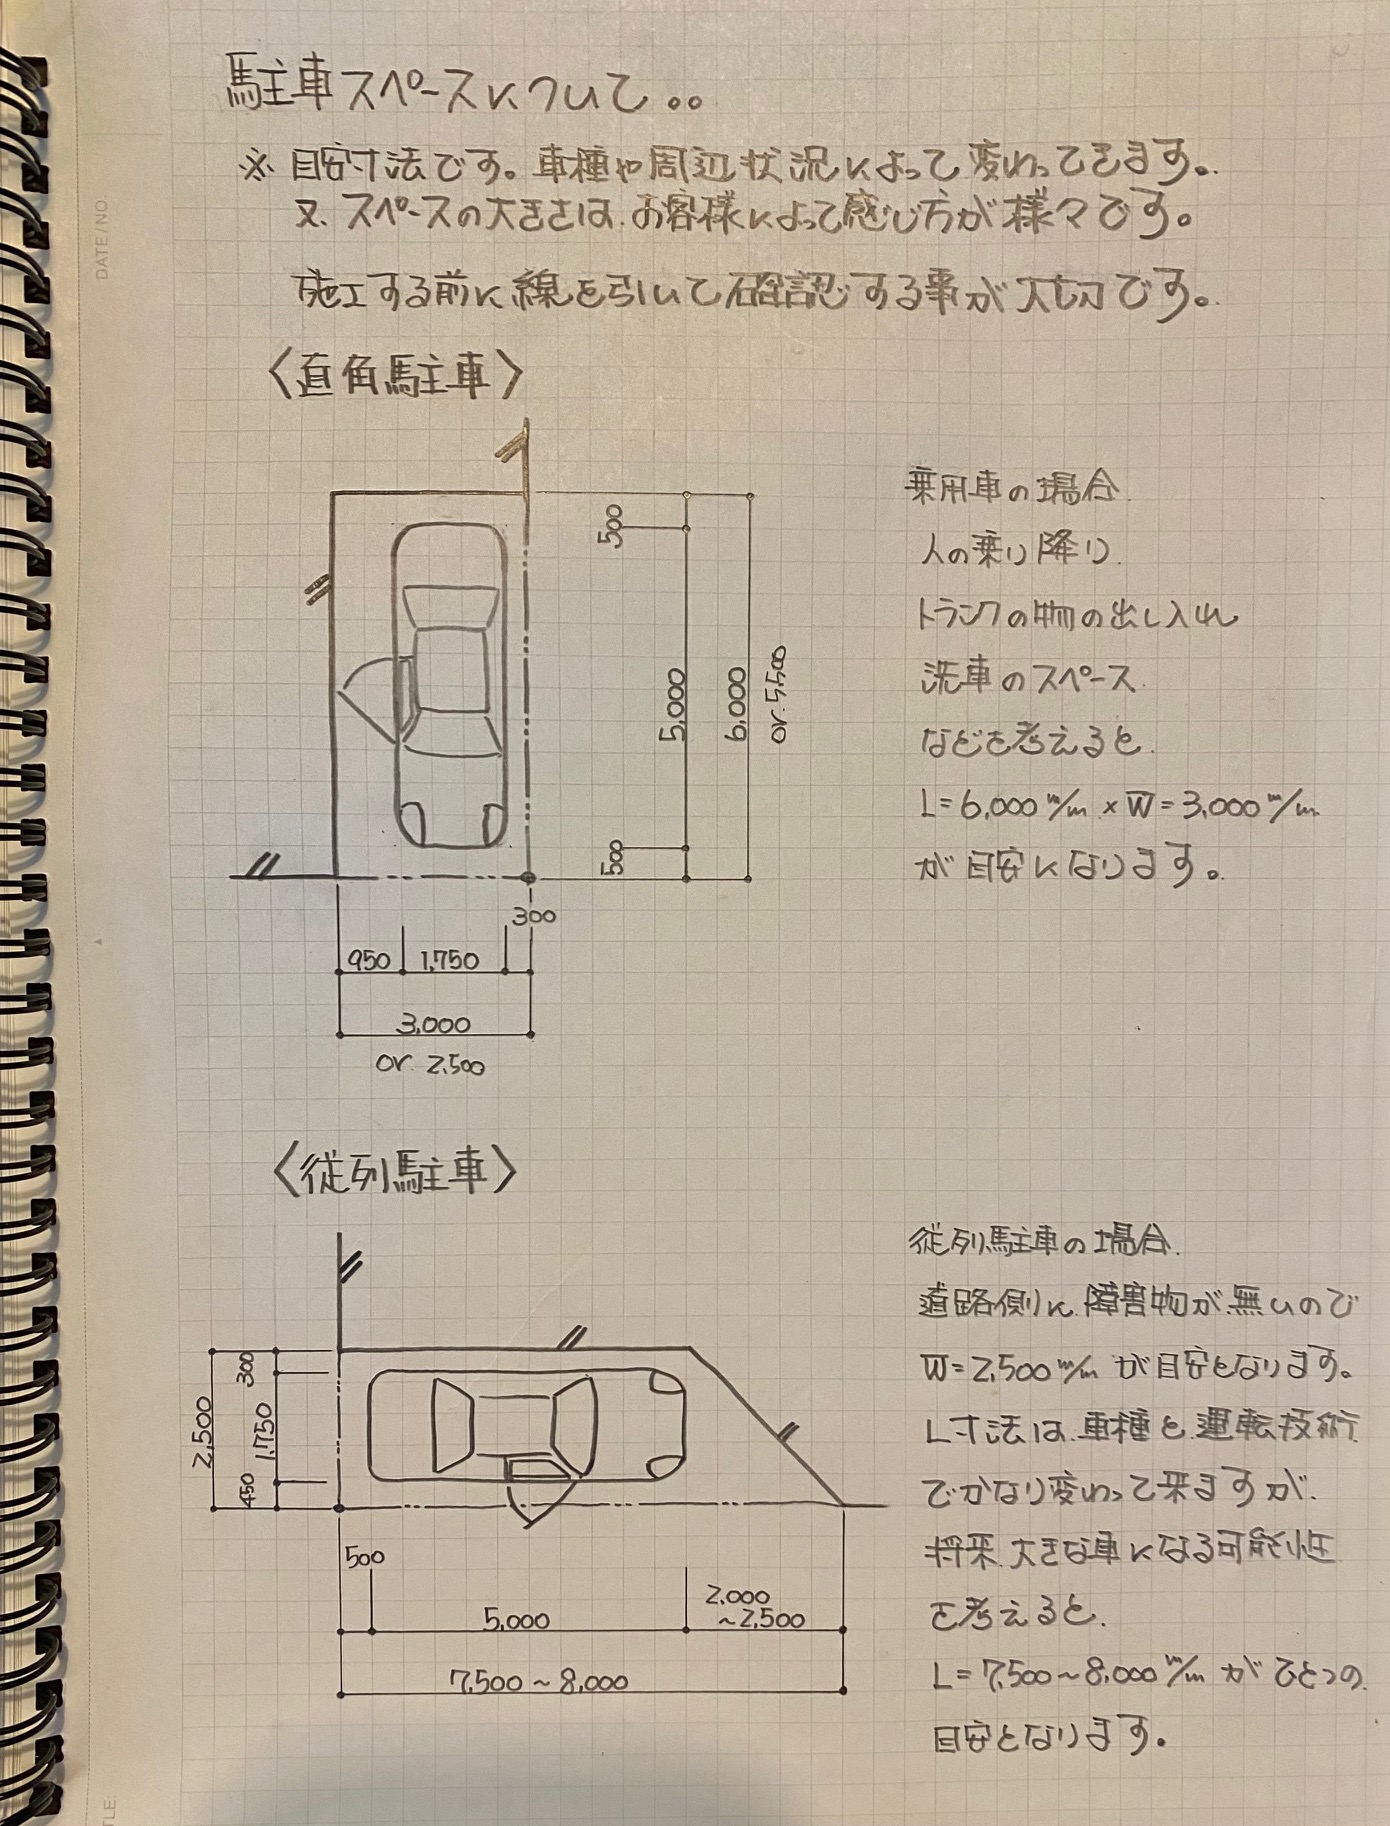 DATE/NO.
駐車スペースについて。。
※ 目安寸法です。車種や周辺状況によって変わってきます。
又、スペースの大きさは、お客様によって感じ方が様々です。
施工する前に線を引いて確認する事が大切です。
〈直角駐車〉
500
5,000
6,000
or.5,500
500
300
950
1,750
3,000
or. 2,500
乗用車の場合、
人の乗り降り、
トランクの物の出し入れ、
洗車のスペース、
などを考えると、
L=6,000m/m × W=3,000m/m
が目安になります。
〈従列駐車〉
300
1,750
450
2,500
500
5,000
2,000
~2,500
7,500~8,000
従列駐車の場合、
道路側に障害物が無いので
W=2,500m/m が目安となります。
L寸法は、車種と、運転技術
でかなり変わって来ますが、
将来、大きな車になる可能性
を考えると、
L=7,500~8,000m/m がひとつの
目安となります。
TLE